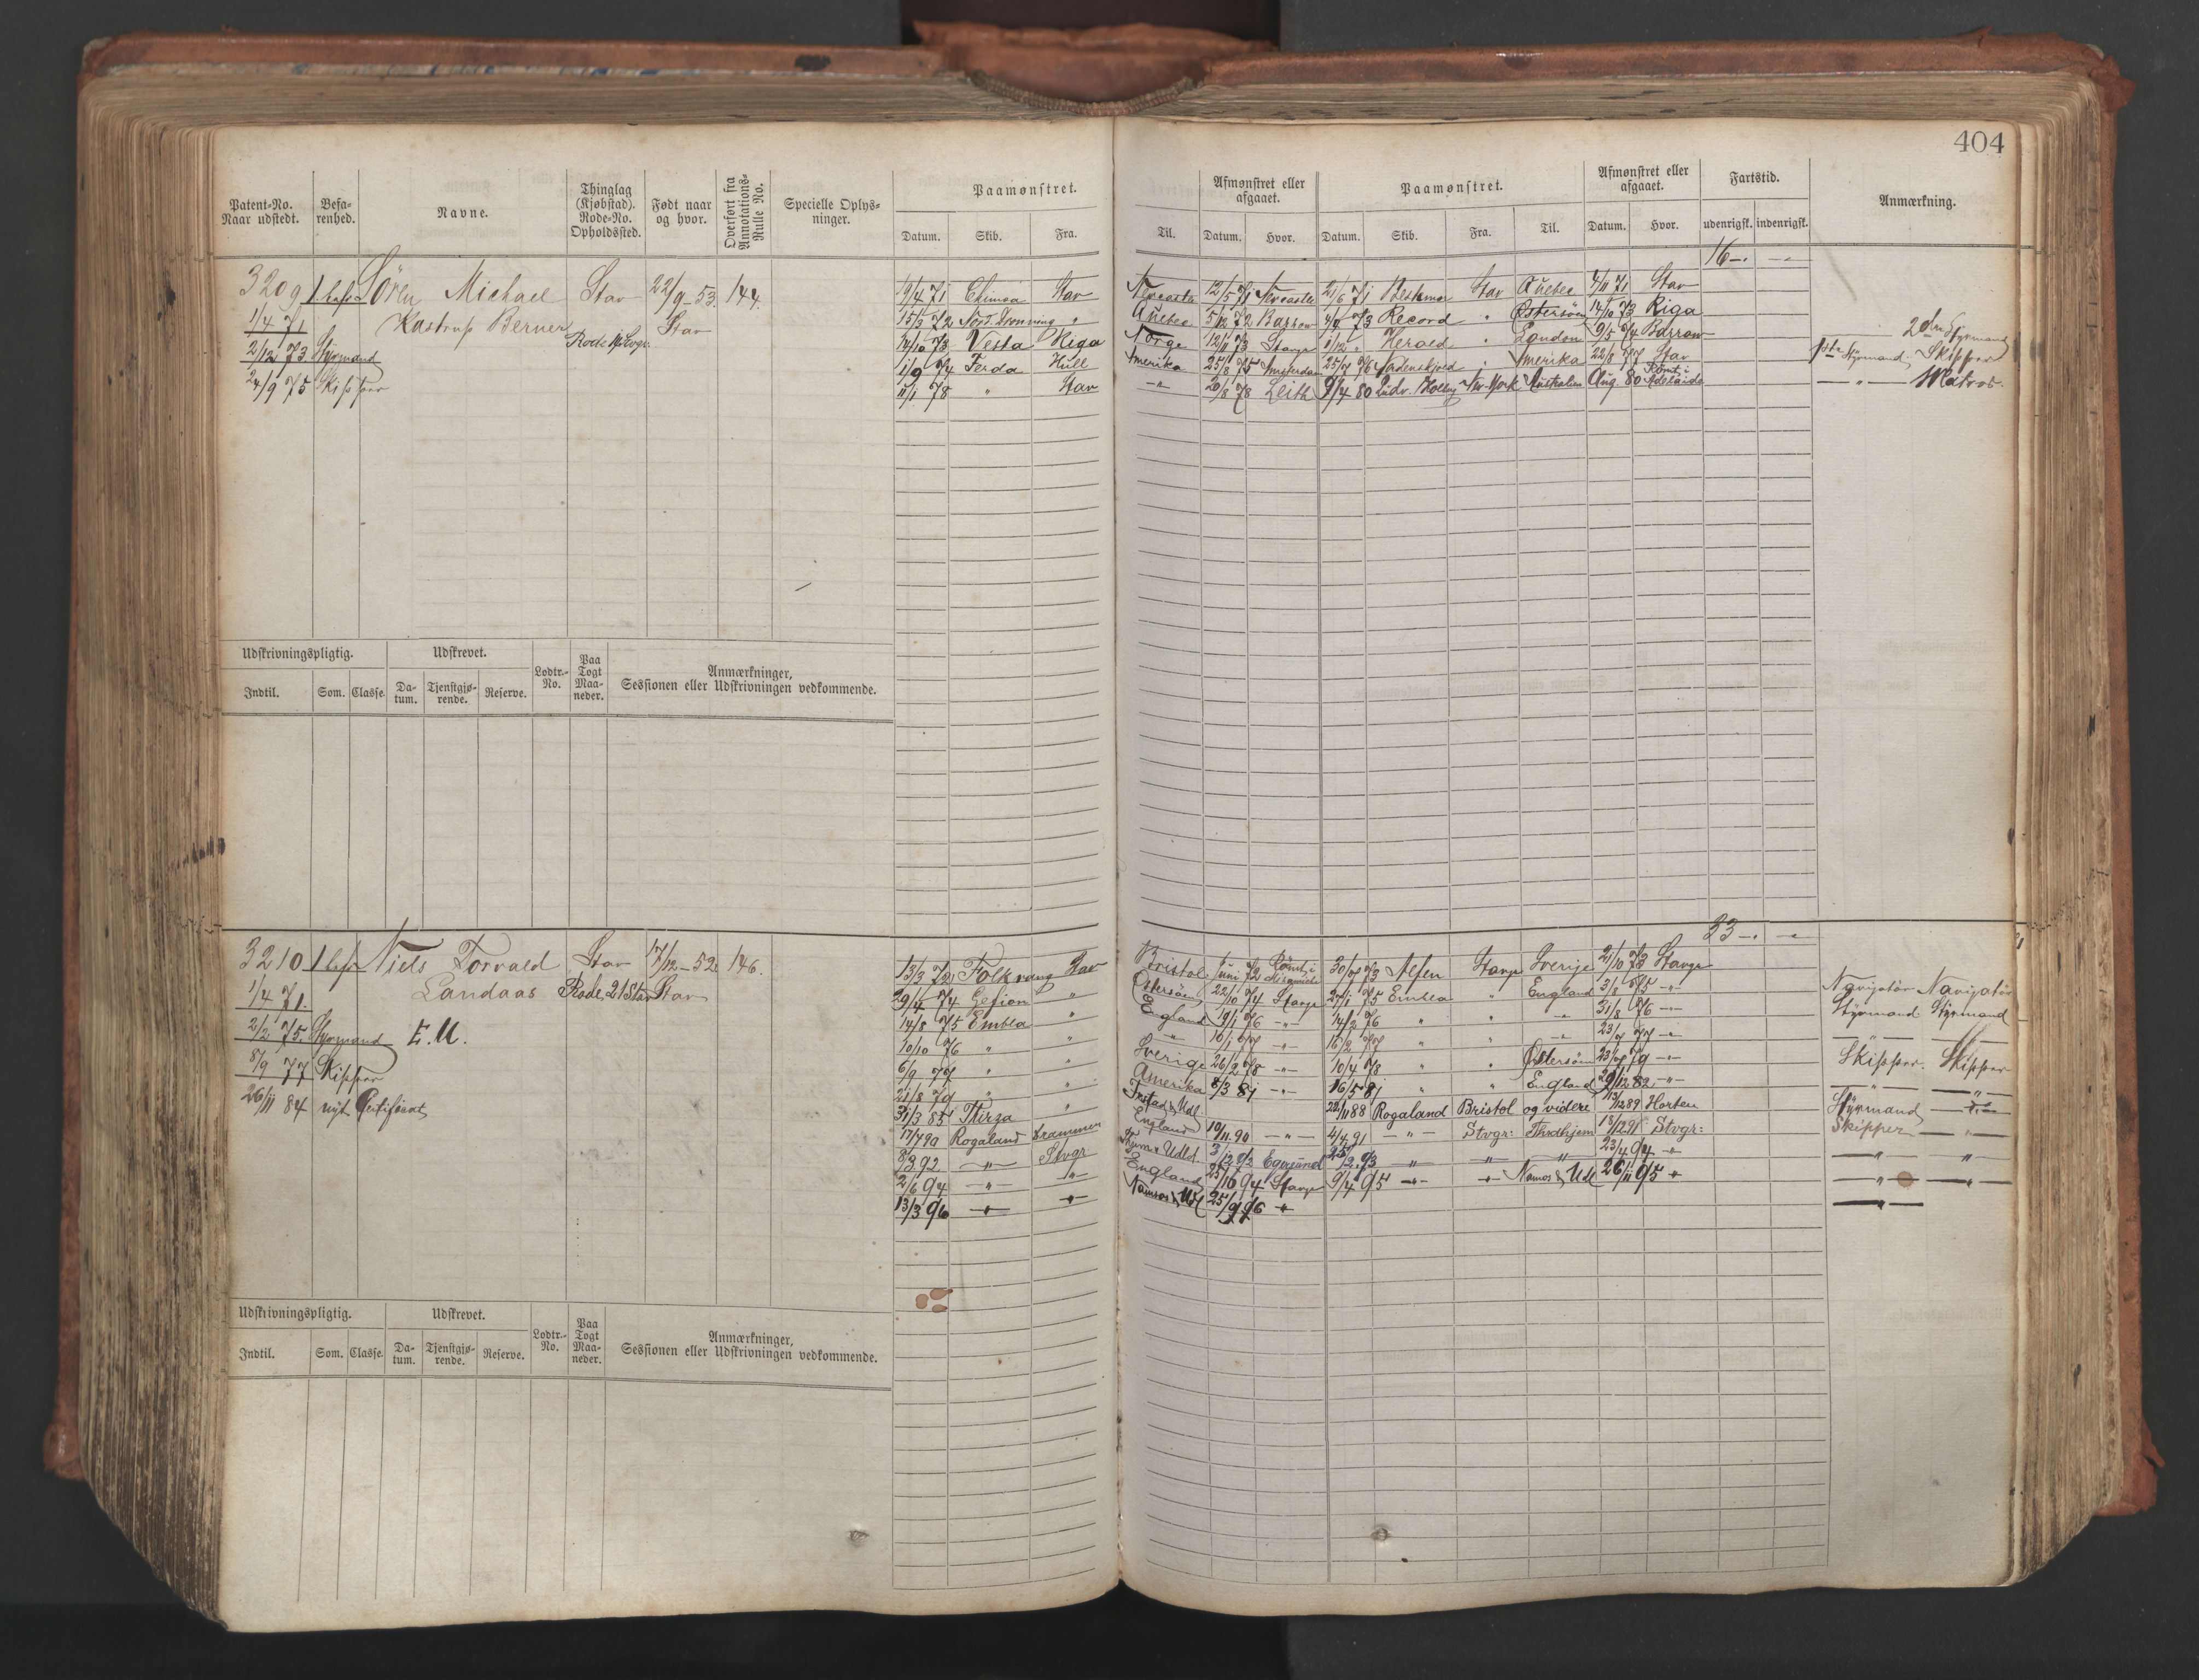 404
Patent-No. Naar udstedt. Befa-renhed. Navne. Thinglag (Kjøbstad). Rode-No. Opholdssted. Født naar og hvor. Overført fra Annotations-Rulle No. Specielle Oplys-ninger. Paamønstret. Afmønstret eller afgaaet. Paamønstret. Afmønstret eller afgaaet. Fartstid. Anmærkning.
Datum. Skib. Fra. Til. Datum. Hvor. Datum. Skib. Fra. Til. Datum. Hvor. udenrigsk. indenrigsk.
16 –
3209 1. bef Sören Michael Stav 22/9 – 53 144. 19/4 71 Stav Newcastle 12/5 71 Newcastle 21/6 71 Stav Quebec 4/11 71 Stav
1/4 71 Kastrup Berner Rode Stav 15/3 72 Nord. Dronning " Quebec 5/12 72 Barrow 73 Record " Østersöen 14/10 73 Riga
2/12 73 Styrmand 14/10 73 Vesta Riga Norge 12/11 73 Stavgr 1/12 " Herold " London 9/5 74 Barrow 2den Styrmand
24/9 75 Skipper 1/9 74 Ferda Hull Amerika 25/8 75 Amsterdam 76 " Amerika 22/8 77 Stav 1ste Styrmand. Skipper
11/1 78 " Stav – " – 20/8 78 Leith 9/4 80 Ludv. Holberg New York Australien Aug. 80 Römt i Adelaide – " – Matros.
Udskrivningspligtig. Udskrevet. Lodtr.-No. Paa Togt Maa-neder. Anmærkninger, Sessionen eller Udskrivningen vedkommende.
Indtil. Som. Classe. Da-tum. Tjenstgjø-rende. Reserve.
23 –
3210 1 bef Niels Torvald Stav 17/12 – 52 146. 13/3 72 Folkvang Stav Bristol Juni 72 Römt i 30/7 73 Alfen Stavgr Sverige 21/10 73 Stavgr
1/4 71. Landaas Rode 21 Stav Stav 29/4 74 Gefion " Østersöen 22/10 74 Stavgr 27/1 75 Embla " England 3/8 75 – " – Navigatör Navigatör
2/2 75. Styrmand E. U. 14/8 75 Embla " England 19/1 76 – " – 14/2 76 " " – " – 31/8 76 – " – Styrmand Styrmand
8/9 77 Skipper 10/10 76 " " – " – 16/1 77 – " – 16/2 77 " " 23/7 77 – " –
26/11 84 nyt Certificat 6/9 77 " " Sverige 26/2 78 – " – 10/4 78 " " Østersöen 23/7 79 – " – Skipper. Skipper
21/8 79 " " Amerika 8/3 81 – " – 16/5 81 " " England 82 – " –
31/3 85 Thirza " Indland & Udl. 22/11 88 Rogaland Bristol og videre 13/12 89 Horten Styrmand – " –
17/4 90 Rogaland Drammen England 10/11 90 – " – 4/4 91 – " – Stvgr: Throdhjem 18/12 91 Stvgr: Skipper – " –
8/3 92 – " – Stvgr Udl. 3/12 92 Egersund 25/2 93 – " – " " 23/4 94 – " –
2/6 94 – " – " England 25/10 94 Stavgr 9/4 95 – " – – " – Namsos & Udl 26/11 95 "
13/3 96 – " – " Namsos & Udl 25/9 96 "
Udskrivningspligtig. Udskrevet. Lodtr.-No. Paa Togt Maa-neder. Anmærkninger, Sessionen eller Udskrivningen vedkommende.
Indtil. Som. Classe. Da-tum. Tjenstgjø-rende. Reserve.